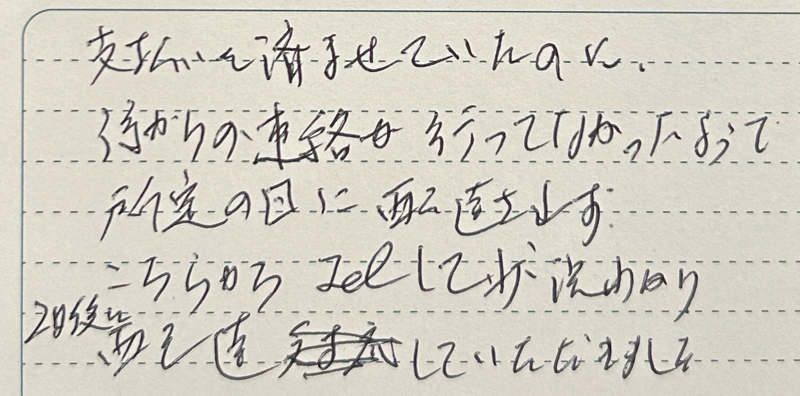 支払いを済ませていたのに、
からの連絡が行ってなかったようで
所定の日に配達されず
こちらからTelして状況わかり
2日後に配達していただきました